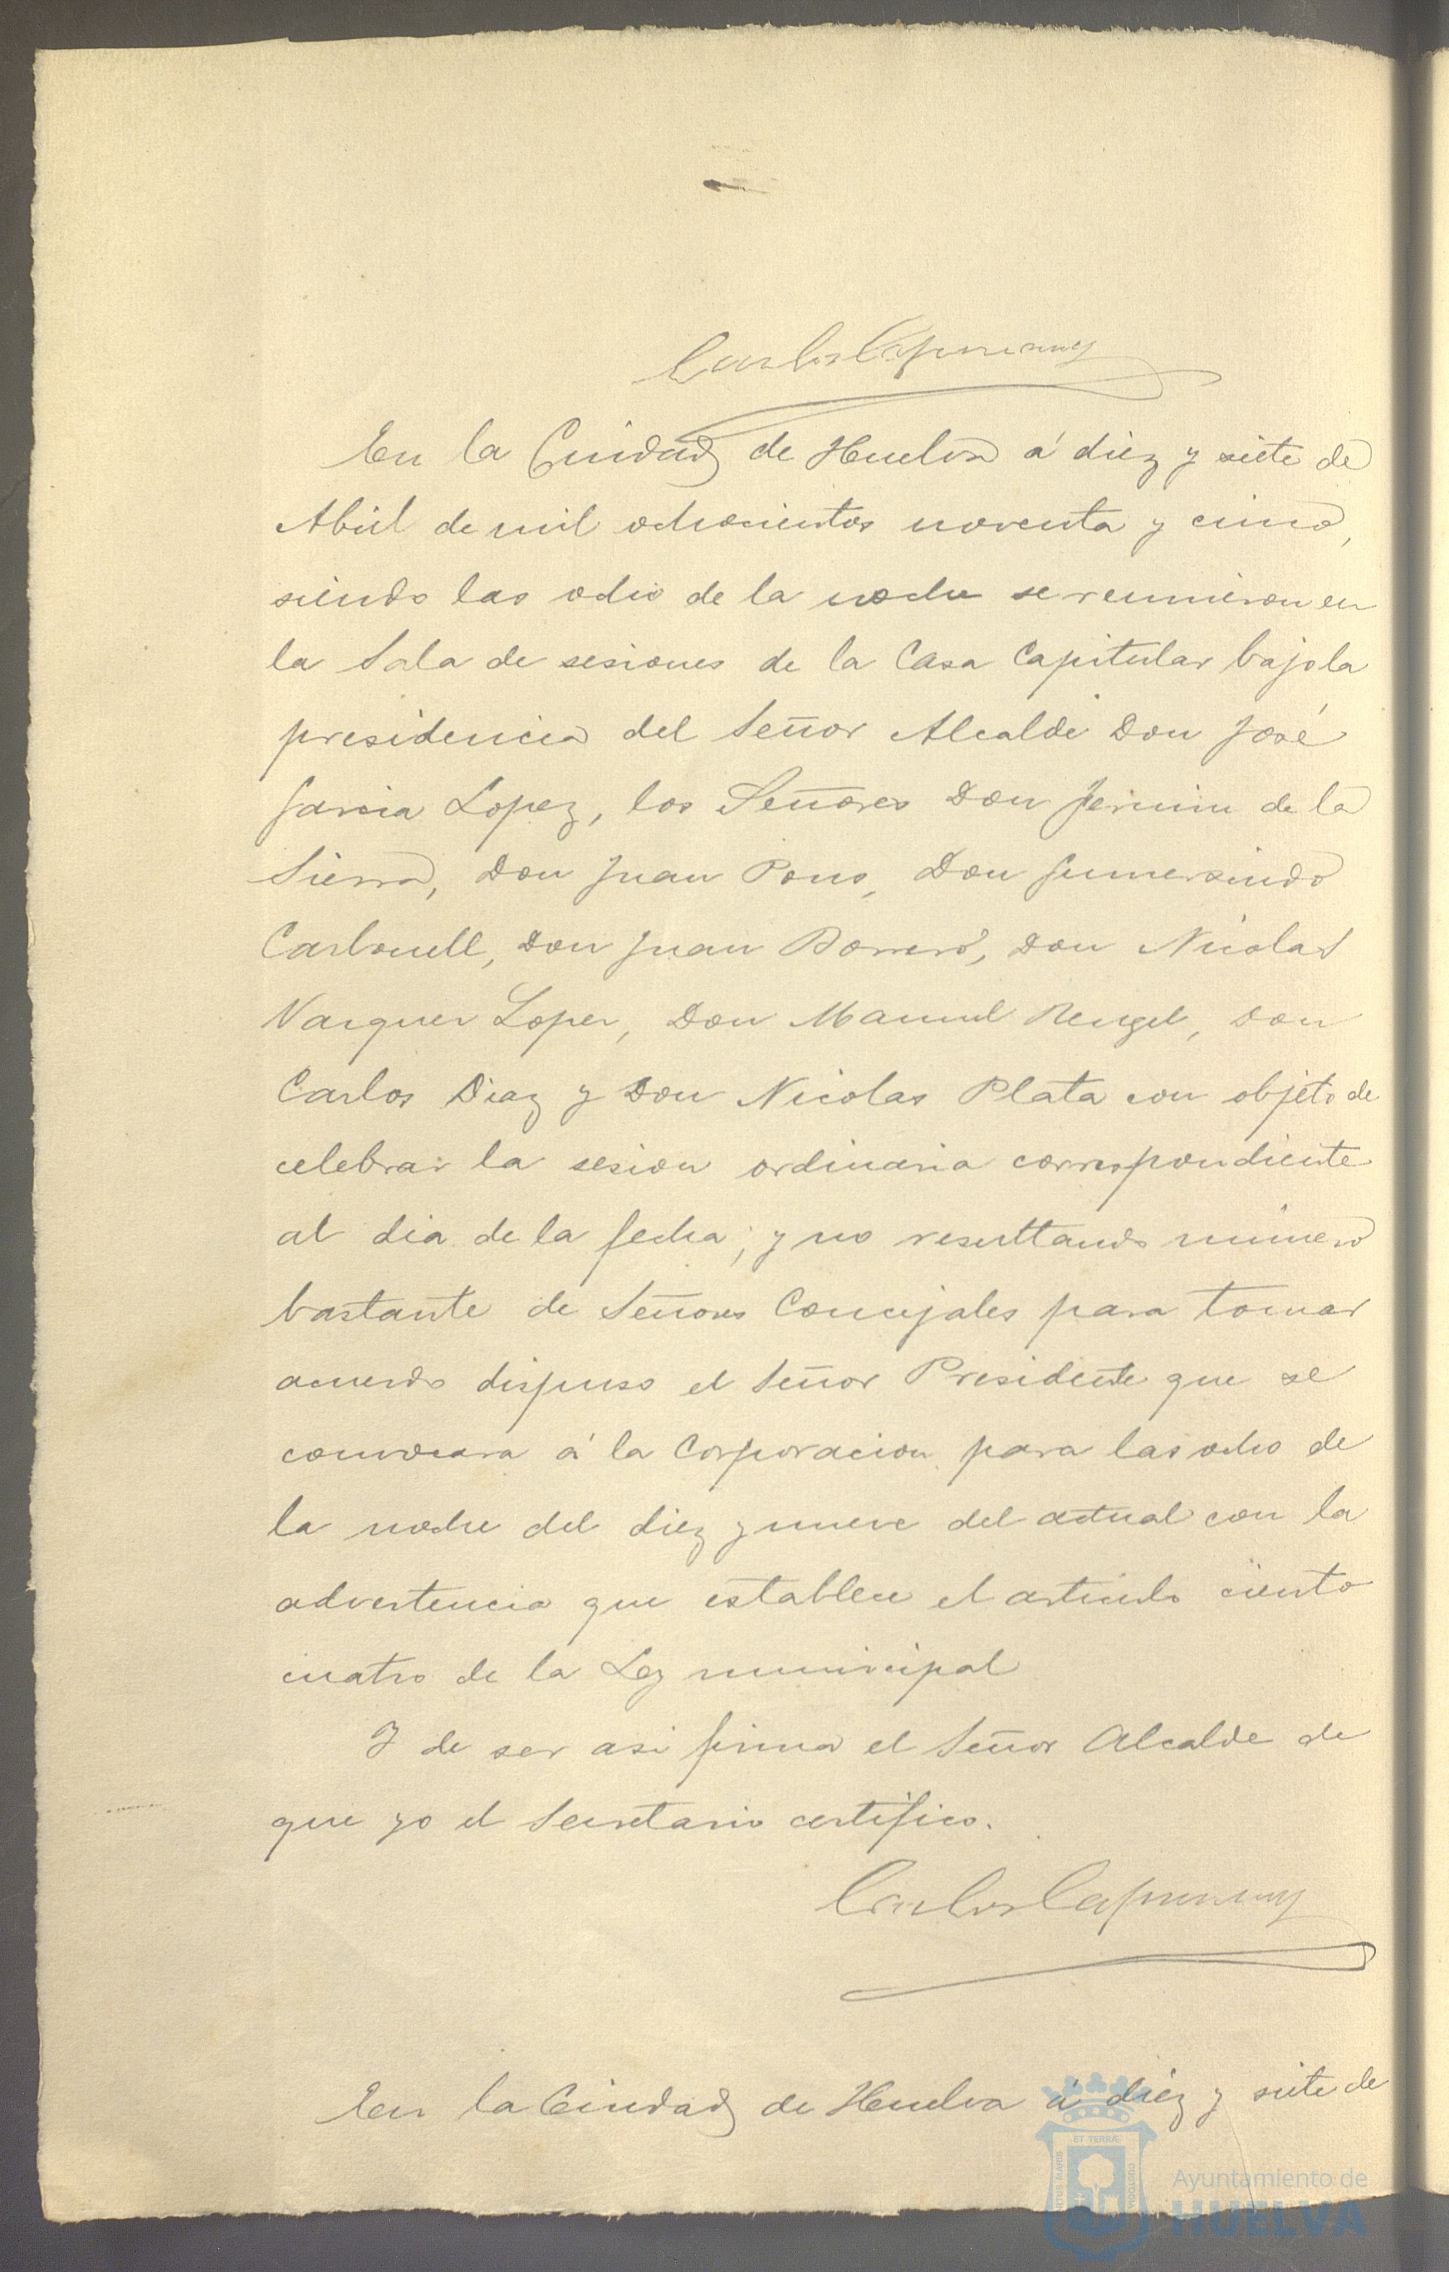 Carlos Capmany
En la Ciudad de Huelva á diez y siete de
Abril de mil ochocientos noventa y cinco,
siendo las ocho de la noche se reunieron en
la Sala de sesiones de la Casa Capitular bajo la
presidencia del Señor Alcalde Don José
Garcia Lopez, los Señores Don Fermin de la
Sierra, Don Juan Pons, Don Gumersindo
Carbonell, Don Juan Borrero, Don Nicolas
Vazquez Lopez, Don Manuel Rengel, Don
Carlos Diaz y Don Nicolas Plata con objeto de
celebrar la sesion ordinaria correspondiente
al dia de la fecha; y no resultando número
bastante de Señores Concejales para tomar
acuerdo dispuso el Señor Presidente que se
convocara á la Corporacion para las ocho de
la noche del diez y nueve del actual con la
advertencia que establece el articulo ciento
cuatro de la Ley municipal
Y de ser asi firma el Señor Alcalde de
que yo el Secretario certifico.
Carlos Capmany
En la Ciudad de Huelva á diez y siete de
ET TERRÆ
Ayuntamiento de
HUELVA